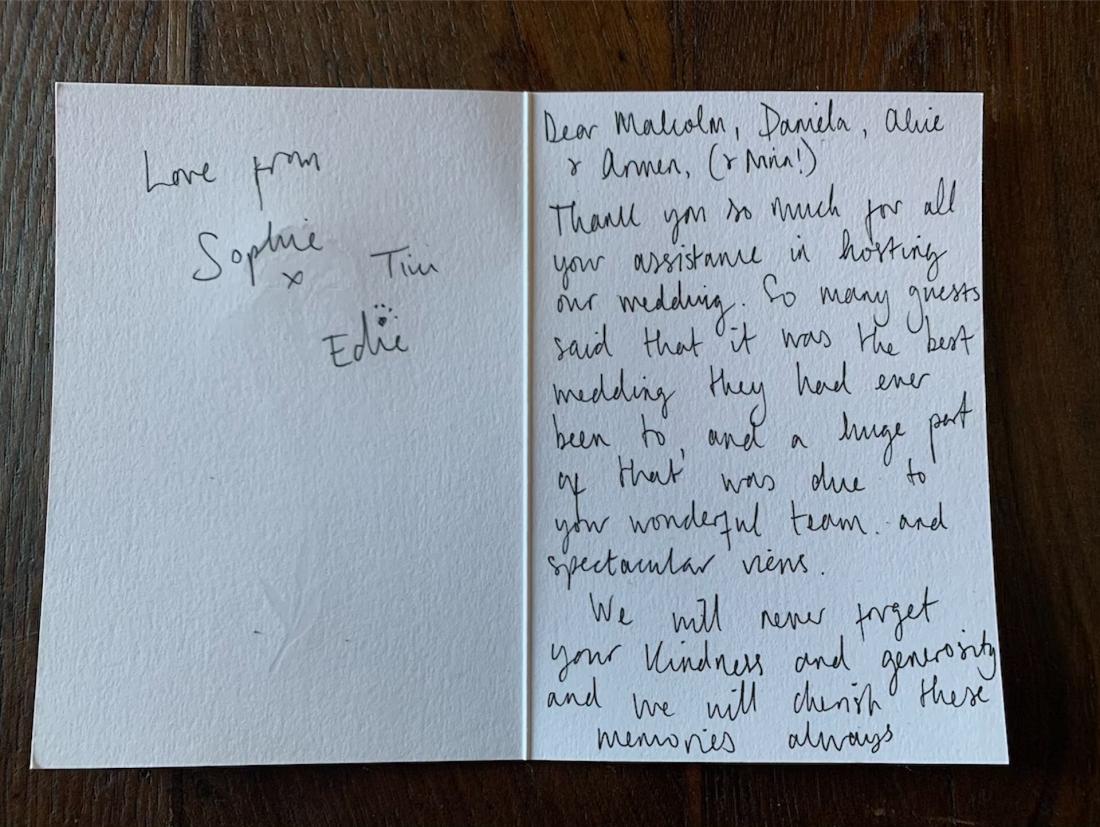 Love from
Sophie
x Tim
Edie
Dear Malcolm, Daniela, Alice
& Armen, (& Nina!)
Thank you so much for all
your assistance in hosting
our wedding. So many guests
said that it was the best
wedding they had ever
been to, and a huge part
of that was due to
your wonderful team. and
spectacular views.
We will never forget
your kindness and generosity
and we will cherish these
memories always